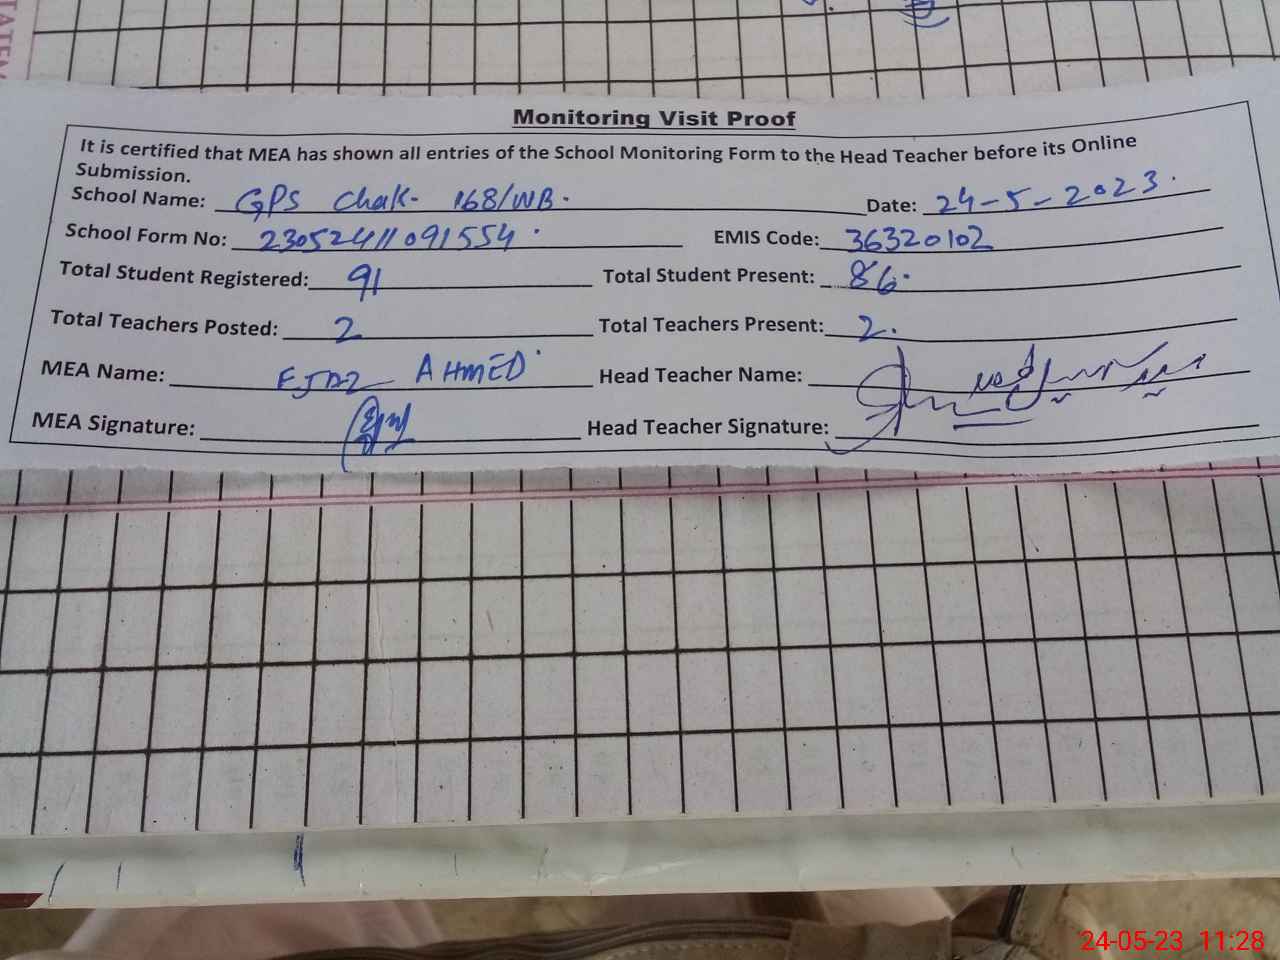 Monitoring Visit Proof
It is certified that MEA has shown all entries of the School Monitoring Form to the Head Teacher before its Online
Submission.
School Name: GPS Chak. 168/WB. Date: 24-5-2023.
School Form No: 23052411091554. EMIS Code: 36320102
Total Student Registered: 91 Total Student Present: 86.
Total Teachers Posted: 2 Total Teachers Present: 2.
MEA Name: EJAZ AHMED Head Teacher Name:
MEA Signature: Head Teacher Signature:
24-05-23 11:28